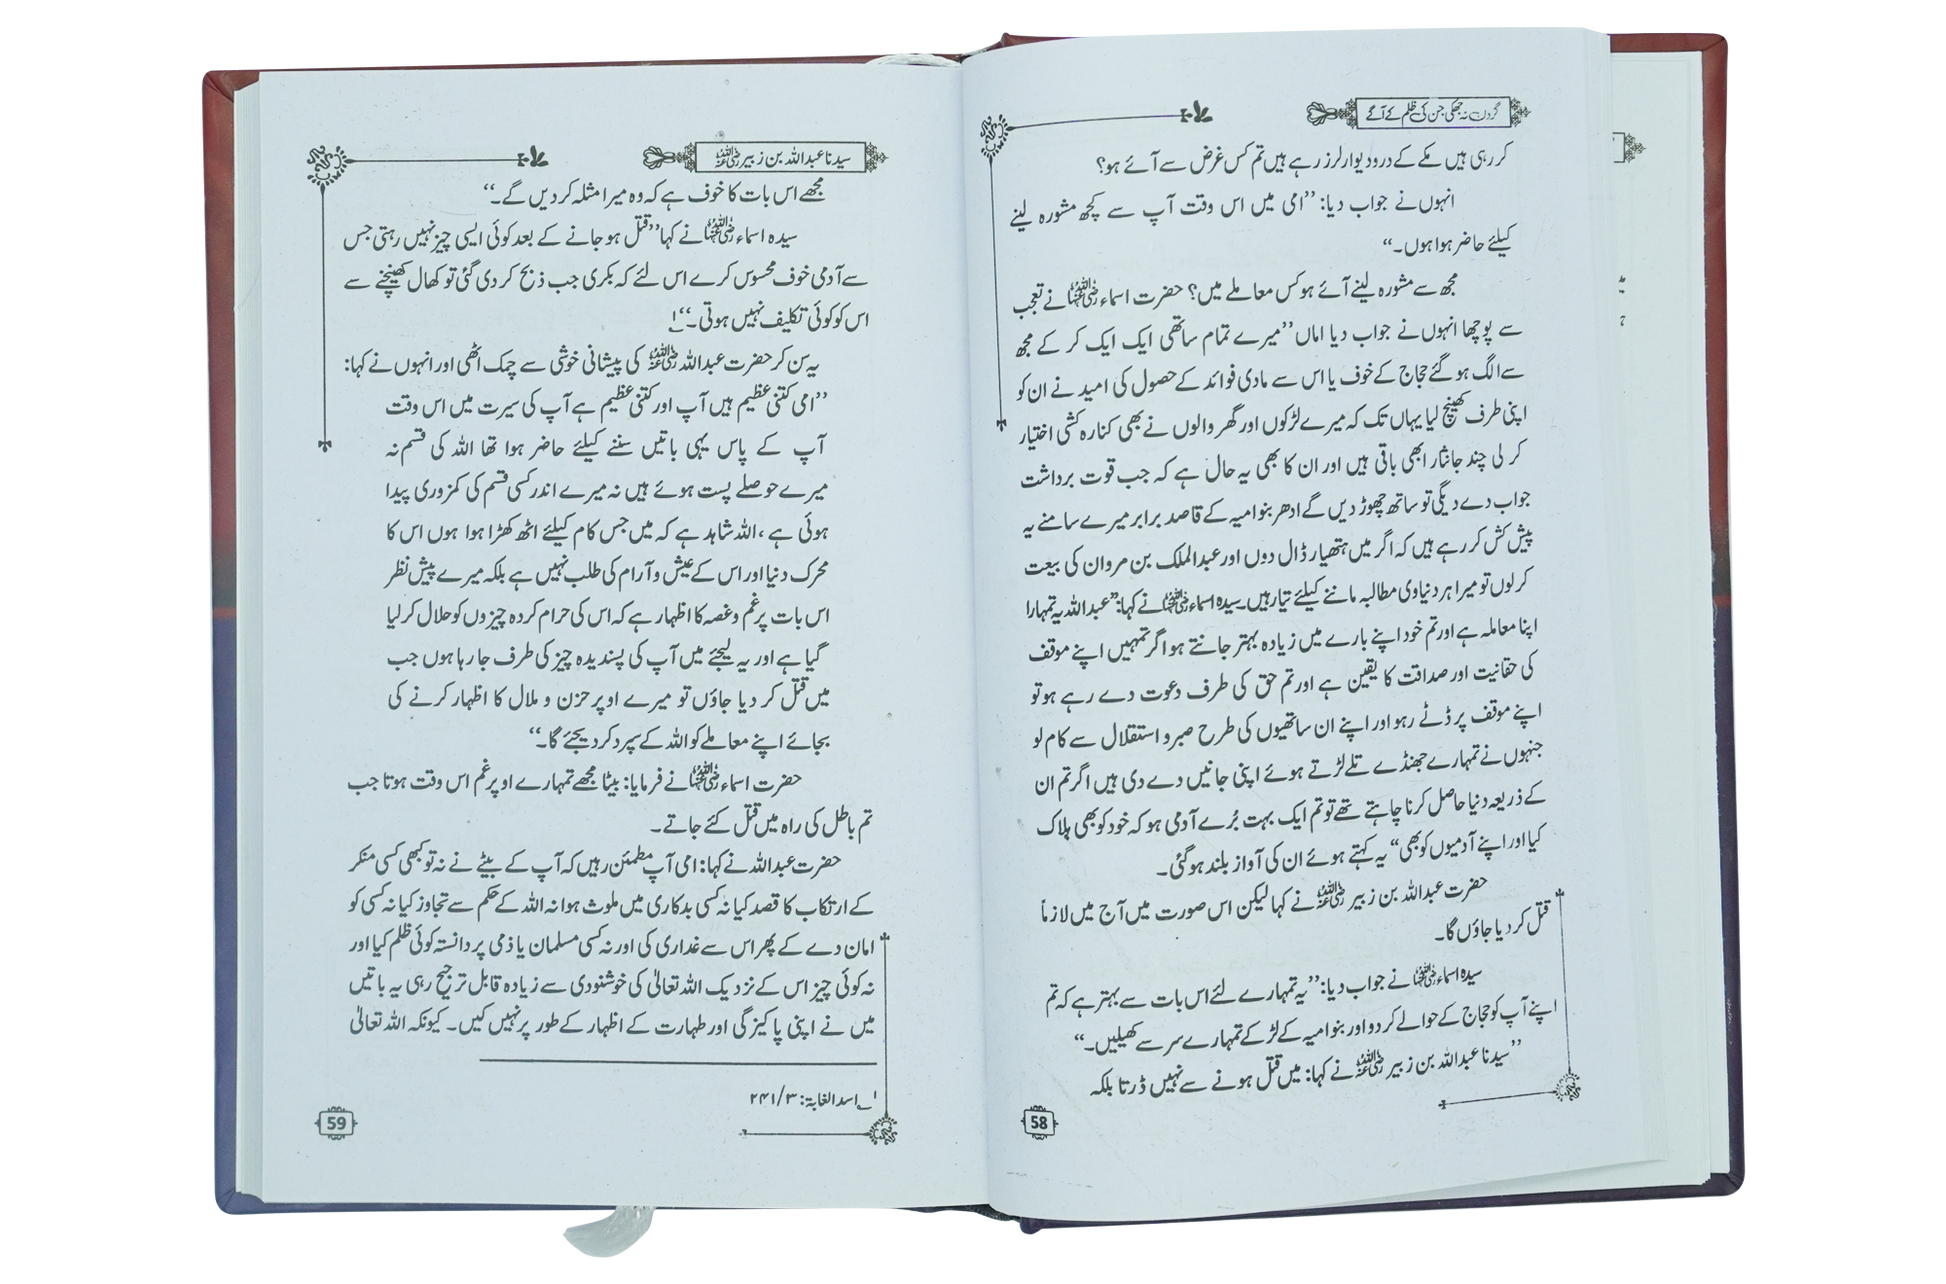 گردن نہ جھکی جن کی ظلم کے آگے
کر رہی ہیں مکے کے در و دیوار لرز رہے ہیں تم کس غرض سے آئے ہو؟
انہوں نے جواب دیا: ’’امی میں اس وقت آپ سے کچھ مشورہ لینے
کیلئے حاضر ہوا ہوں۔‘‘
مجھ سے مشورہ لینے آئے ہو کس معاملے میں؟ حضرت اسماء رضی اللہ عنہا نے تعجب
سے پوچھا انہوں نے جواب دیا اماں ’’میرے تمام ساتھی ایک ایک کر کے مجھ
سے الگ ہو گئے حجاج کے خوف یا اس سے مادی فوائد کے حصول کی امید نے ان کو
اپنی طرف کھینچ لیا یہاں تک کہ میرے لڑکوں اور گھر والوں نے بھی کنارہ کشی اختیار
کر لی چند جانثار ابھی باقی ہیں اور ان کا بھی یہ حال ہے کہ جب قوت برداشت
جواب دے دیگی تو ساتھ چھوڑ دیں گے ادھر بنو امیہ کے قاصد برابر میرے سامنے یہ
پیش کش کر رہے ہیں کہ اگر میں ہتھیار ڈال دوں اور عبدالملک بن مروان کی بیعت
کرلوں تو میرا ہر دنیاوی مطالبہ ماننے کیلئے تیار ہیں۔ سیدہ اسماء رضی اللہ عنہا نے کہا: ’’عبداللہ یہ تمہارا
اپنا معاملہ ہے اور تم خود اپنے بارے میں زیادہ بہتر جانتے ہو اگر تمہیں اپنے موقف
کی حقانیت اور صداقت کا یقین ہے اور تم حق کی طرف دعوت دے رہے ہو تو
اپنے موقف پر ڈٹے رہو اور اپنے ان ساتھیوں کی طرح صبر و استقلال سے کام لو
جنہوں نے تمہارے جھنڈے تلے لڑتے ہوئے اپنی جانیں دے دی ہیں اگر تم ان
کے ذریعہ دنیا حاصل کرنا چاہتے تھے تو تم ایک بہت بُرے آدمی ہو کہ خود کو بھی ہلاک
کیا اور اپنے آدمیوں کو بھی‘‘ یہ کہتے ہوئے ان کی آواز بلند ہو گئی۔
حضرت عبداللہ بن زبیر رضی اللہ عنہ نے کہا لیکن اس صورت میں آج میں لازماً
قتل کر دیا جاؤں گا۔
سیدہ اسماء رضی اللہ عنہا نے جواب دیا: ’’یہ تمہارے لئے اس بات سے بہتر ہے کہ تم
اپنے آپ کو حجاج کے حوالے کر دو اور بنو امیہ کے لڑکے تمہارے سر سے کھیلیں۔‘‘
’’سیدنا عبداللہ بن زبیر رضی اللہ عنہ نے کہا: میں قتل ہونے سے نہیں ڈرتا بلکہ
58
سیدنا عبداللہ بن زبیر رضی اللہ عنہ
مجھے اس بات کا خوف ہے کہ وہ میرا مثلہ کر دیں گے۔‘‘
سیدہ اسماء رضی اللہ عنہا نے کہا ’’قتل ہو جانے کے بعد کوئی ایسی چیز نہیں رہتی جس
سے آدمی خوف محسوس کرے اس لئے کہ بکری جب ذبح کر دی گئی تو کھال کھینچنے سے
اس کو کوئی تکلیف نہیں ہوتی۔‘‘۱
یہ سن کر حضرت عبداللہ رضی اللہ عنہ کی پیشانی خوشی سے چمک اٹھی اور انہوں نے کہا:
’’امی کتنی عظیم ہیں آپ اور کتنی عظیم ہے آپ کی سیرت میں اس وقت
آپ کے پاس یہی باتیں سننے کیلئے حاضر ہوا تھا اللہ کی قسم نہ
میرے حوصلے پست ہوئے ہیں نہ میرے اندر کسی قسم کی کمزوری پیدا
ہوئی ہے، اللہ شاہد ہے کہ میں جس کام کیلئے اٹھ کھڑا ہوا ہوں اس کا
محرک دنیا اور اس کے عیش و آرام کی طلب نہیں ہے بلکہ میرے پیش نظر
اس بات پر غم و غصہ کا اظہار ہے کہ اس کی حرام کردہ چیزوں کو حلال کر لیا
گیا ہے اور یہ لیجئے میں آپ کی پسندیدہ چیز کی طرف جا رہا ہوں جب
میں قتل کر دیا جاؤں تو میرے اوپر حزن و ملال کا اظہار کرنے کی
بجائے اپنے معاملے کو اللہ کے سپرد کر دیجئے گا۔‘‘
حضرت اسماء رضی اللہ عنہا نے فرمایا: بیٹا مجھے تمہارے اوپر غم اس وقت ہوتا جب
تم باطل کی راہ میں قتل کئے جاتے۔
حضرت عبداللہ نے کہا: امی آپ مطمئن رہیں کہ آپ کے بیٹے نے نہ تو کبھی کسی منکر
کے ارتکاب کا قصد کیا نہ کسی بدکاری میں ملوث ہوا نہ اللہ کے حکم سے تجاوز کیا نہ کسی کو
امان دے کے پھر اس سے غداری کی اور نہ کسی مسلمان یا ذمی پر دانستہ کوئی ظلم کیا اور
نہ کوئی چیز اس کے نزدیک اللہ تعالیٰ کی خوشنودی سے زیادہ قابل ترجیح رہی یہ باتیں
میں نے اپنی پاکیزگی اور طہارت کے اظہار کے طور پر نہیں کیں۔ کیونکہ اللہ تعالیٰ
۱؂اسد الغابة: ۲۴۱/۳
59